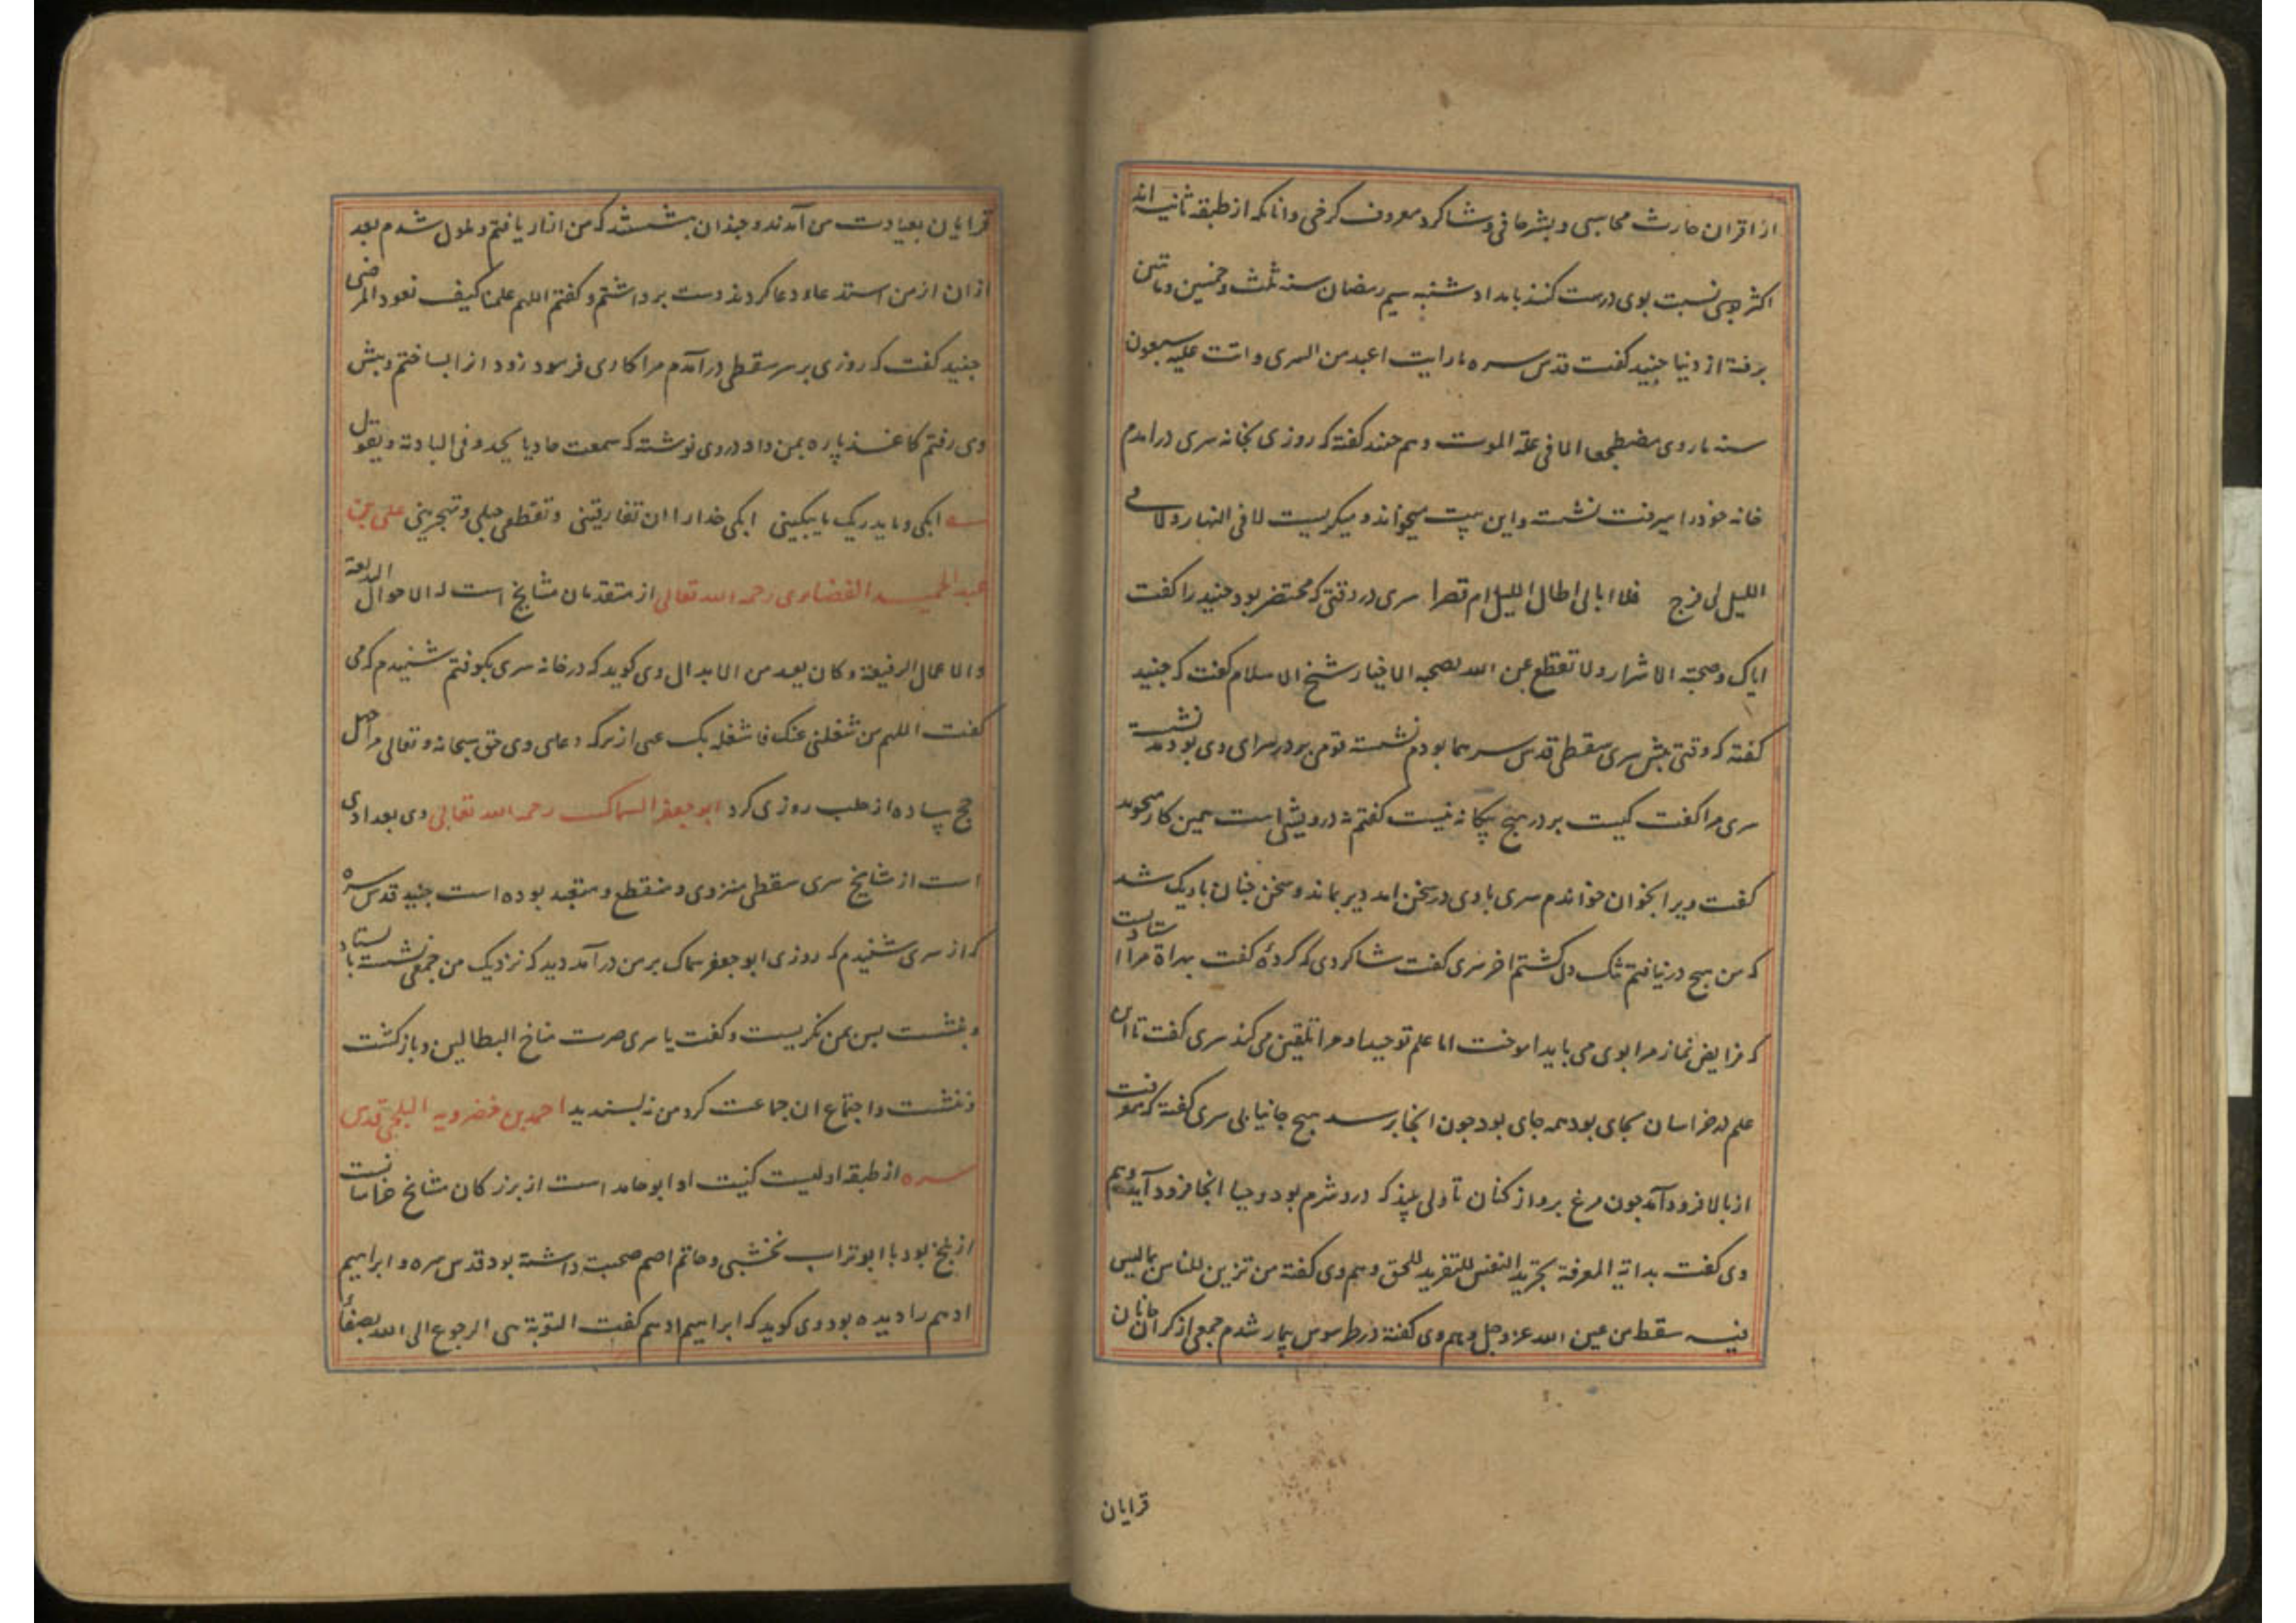 از اقران حارث محاسبی و بشر حافی و شاکرد معروف کرخی و انانکه از طبقه ثانیه اند
اکثر نسبت بوی درست کنند بامداد شنبه سیم رمضان سنه ثلث و خمسین و ماتین
برفته از دنیا جنید کفت قدس سره ما رایت اعبد من السری و اتت علیه سبعون
سنه ما روی مضطجعا الا فی علة الموت و هم جنید کفته که روزی بخانه سری درامدم
خانه خود را میرفت نشسته و این بیت میخواند و میکریست لا فی النهار ولا فی
اللیل لی فرج فلا ابالی اطال اللیل ام قصرا سری در وقتی که محتضر بود جنید را کفت
ایاک و صحبة الاشرار ولا تقطع عن الله بصحبه الاخیار شیخ الاسلام کفت که جنید
کفته که وقتی پیش سری سقطی قدس سرهما بودم نشسته قومی بر در سرای وی بودند نشسته
سری مرا کفت کیست بر در هیچ بیکانه نیست کفتم نه درویشی است همین کار میجوید
کفت ویرا بخوان خواندم سری با وی در سخن امد دیر بماند و سخن چنان باریک شد
که من هیچ درنیافتم تنک دل کشتم اخر سری کفت شاکردی که کردۀ کفت بهراة مرا استادیست
که فرایض نماز مرا بوی می باید اموخت اما علم توحید او مرا تلقین می کند سری کفت تا این
علم در خراسان بجای بود همه جای بود چون انجا برسد هیچ جا نیابی سری کفته که معرفت
از بالا فرود آمد چون مرغ پرواز کنان تا دلی بیند که درو شرم بود و حیا انجا فرود آید و هم
وی کفت بدایة المعرفة تجرید النفس للتفرید للحق و هم وی کفته من تزین للناس بما لیس
فیه سقط من عین الله عز وجل و هم وی کفته در طرسوس بیمار شدم جمعی از کرانان
قرایان
قرایان بعیادت من آمدند و چندان بنشستند که من ازار یافتم و ملول شدم بعد
ازان از من استدعاء دعا کردند دست برداشتم و کفتم اللهم علمنا کیف نعود المرضی
جنید کفت که روزی بر سر سقطی درآمدم مرا کاری فرمود زود انرا بساختم و پیش
وی رفتم کاغذ پاره بمن داد در وی نوشته که سمعت حادیا یحدو فی البادیة و یقول
ابکی و ما یدریک ما یبکینی ابکی حذارا ان تفارقینی و تقطعی حبلی و تهجرینی علی بن
عبد الحمید الغضایری رحمه الله تعالی از متقدمان مشایخ است له الاحوال البدیعة
و الاعمال الرفیعة و کان یعد من الابدال وی کوید که در خانه سری بکوفتم شنیدم که می
کفت اللهم من شغلنی عنک فاشغله بک عنی از برکه دعاء وی حق سبحانه و تعالی مرا چهل
حج پیاده از حلب روزی کرد ابو جعفر السماک رحمه الله تعالی وی بغدادی
است از مشایخ سری سقطی منزوی و منقطع و متعبد بوده است جنید قدس سره
که از سری شنیدم که روزی ابو جعفر سماک بر من درآمد دید که نزدیک من جمعی نشسته باستاد
و ننشست پس بمن نکریست و کفت یا سری صرت مناخ البطالین و بازکشت
و ننشست و اجتماع ان جماعت کرد من نه پسندید احمد بن خضرویه البلخی قدس
سره از طبقه اولیست کنیت او ابو حامد است از بزرکان مشایخ خراسانست
از بلخ بود با ابو تراب نخشبی و حاتم اصم صحبت داشته بود قدس سره و ابراهیم
ادهم را دیده بود وی کوید که ابراهیم ادهم کفت التوبة هی الرجوع الی الله بصفاء